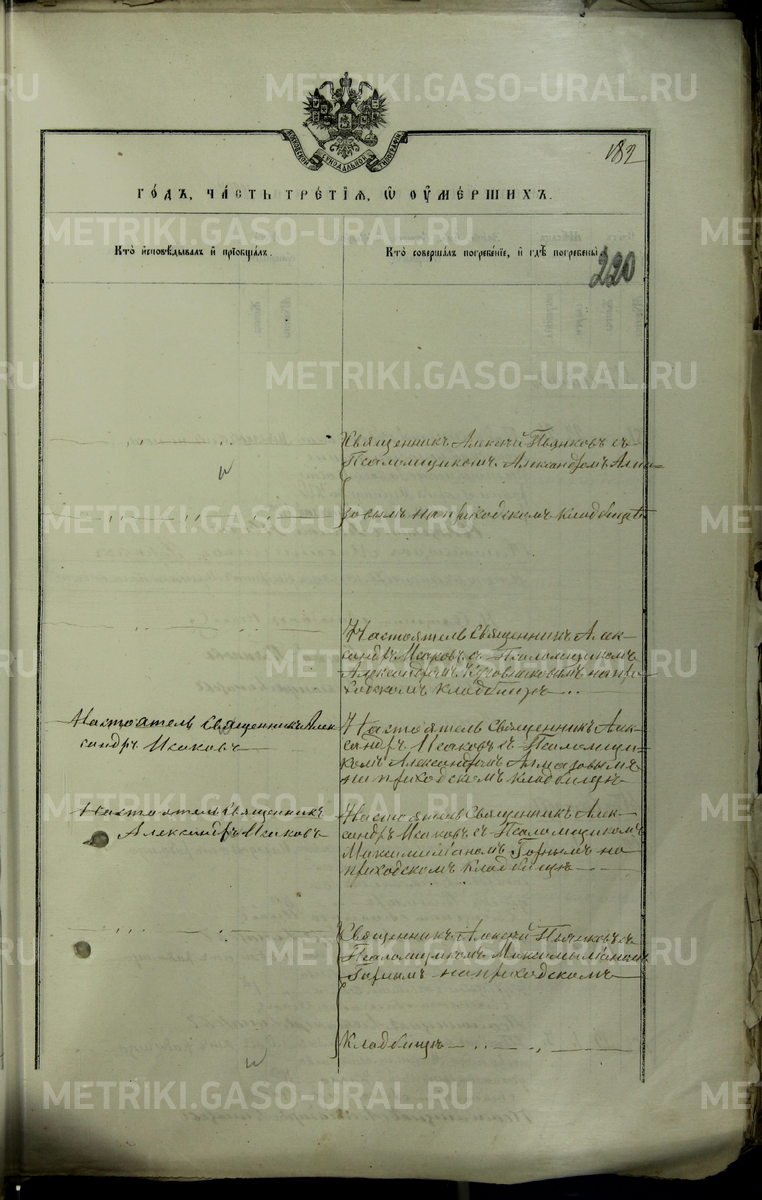 METRIKI.GASO-URAL.RU
182
МОСКОВСКОЙ СѴНОДАЛЬНОЙ ТИПОГРАФІИ
ГОДЪ, ЧАСТЬ ТРЕТІЯ, Ѡ ОУМЕРШИХЪ.
Кто исповѣдывалъ и пріобщалъ.
Кто совершалъ погребеніе, и гдѣ погребены.
220
Священникъ Алексій Пьянковъ съ
Псаломщикомъ Александромъ Алма=
зовымъ на приходскомъ кладбищѣ
Настоятель Священникъ Алек-
сандръ Исаковъ съ Псаломщикомъ
Александромъ на при=
ходскомъ кладбищѣ
Настоятель Священникъ Алек
сандръ Исаковъ
Настоятель Священникъ Алек=
сандръ Исаковъ съ Псаломщи=
комъ Александромъ Алмазовымъ
на приходскомъ кладбищѣ
Настоятель Священникъ
Александръ Исаковъ
Настоятель Священникъ Алек=
сандръ Исаковъ съ Псаломщикомъ
Максимиліаномъ Горнымъ на
приходскомъ кладбищѣ
Священникъ Алексій Пьянковъ съ
Псаломщикомъ Максимиліаномъ
Горнымъ на приходскомъ
кладбищѣ